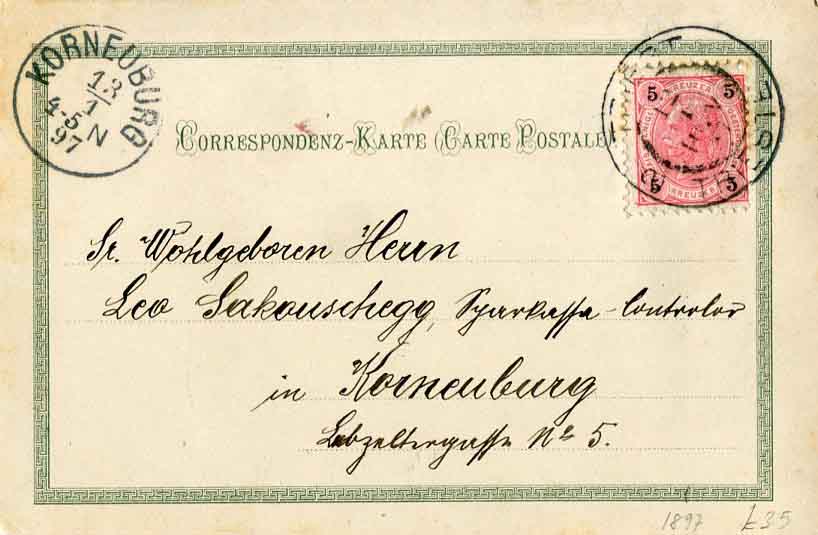 KORNEUBURG
13/1
4-5 N
97
CORRESPONDENZ-KARTE (CARTE POSTALE
5 KREUZER 5
5 KREUZER 5
Sr. Wohlgeboren Herrn
Leo Sakouschegg, Sparkassa-Controlor
in Korneuburg
Lebzeltergasse No 5.
1897 £35